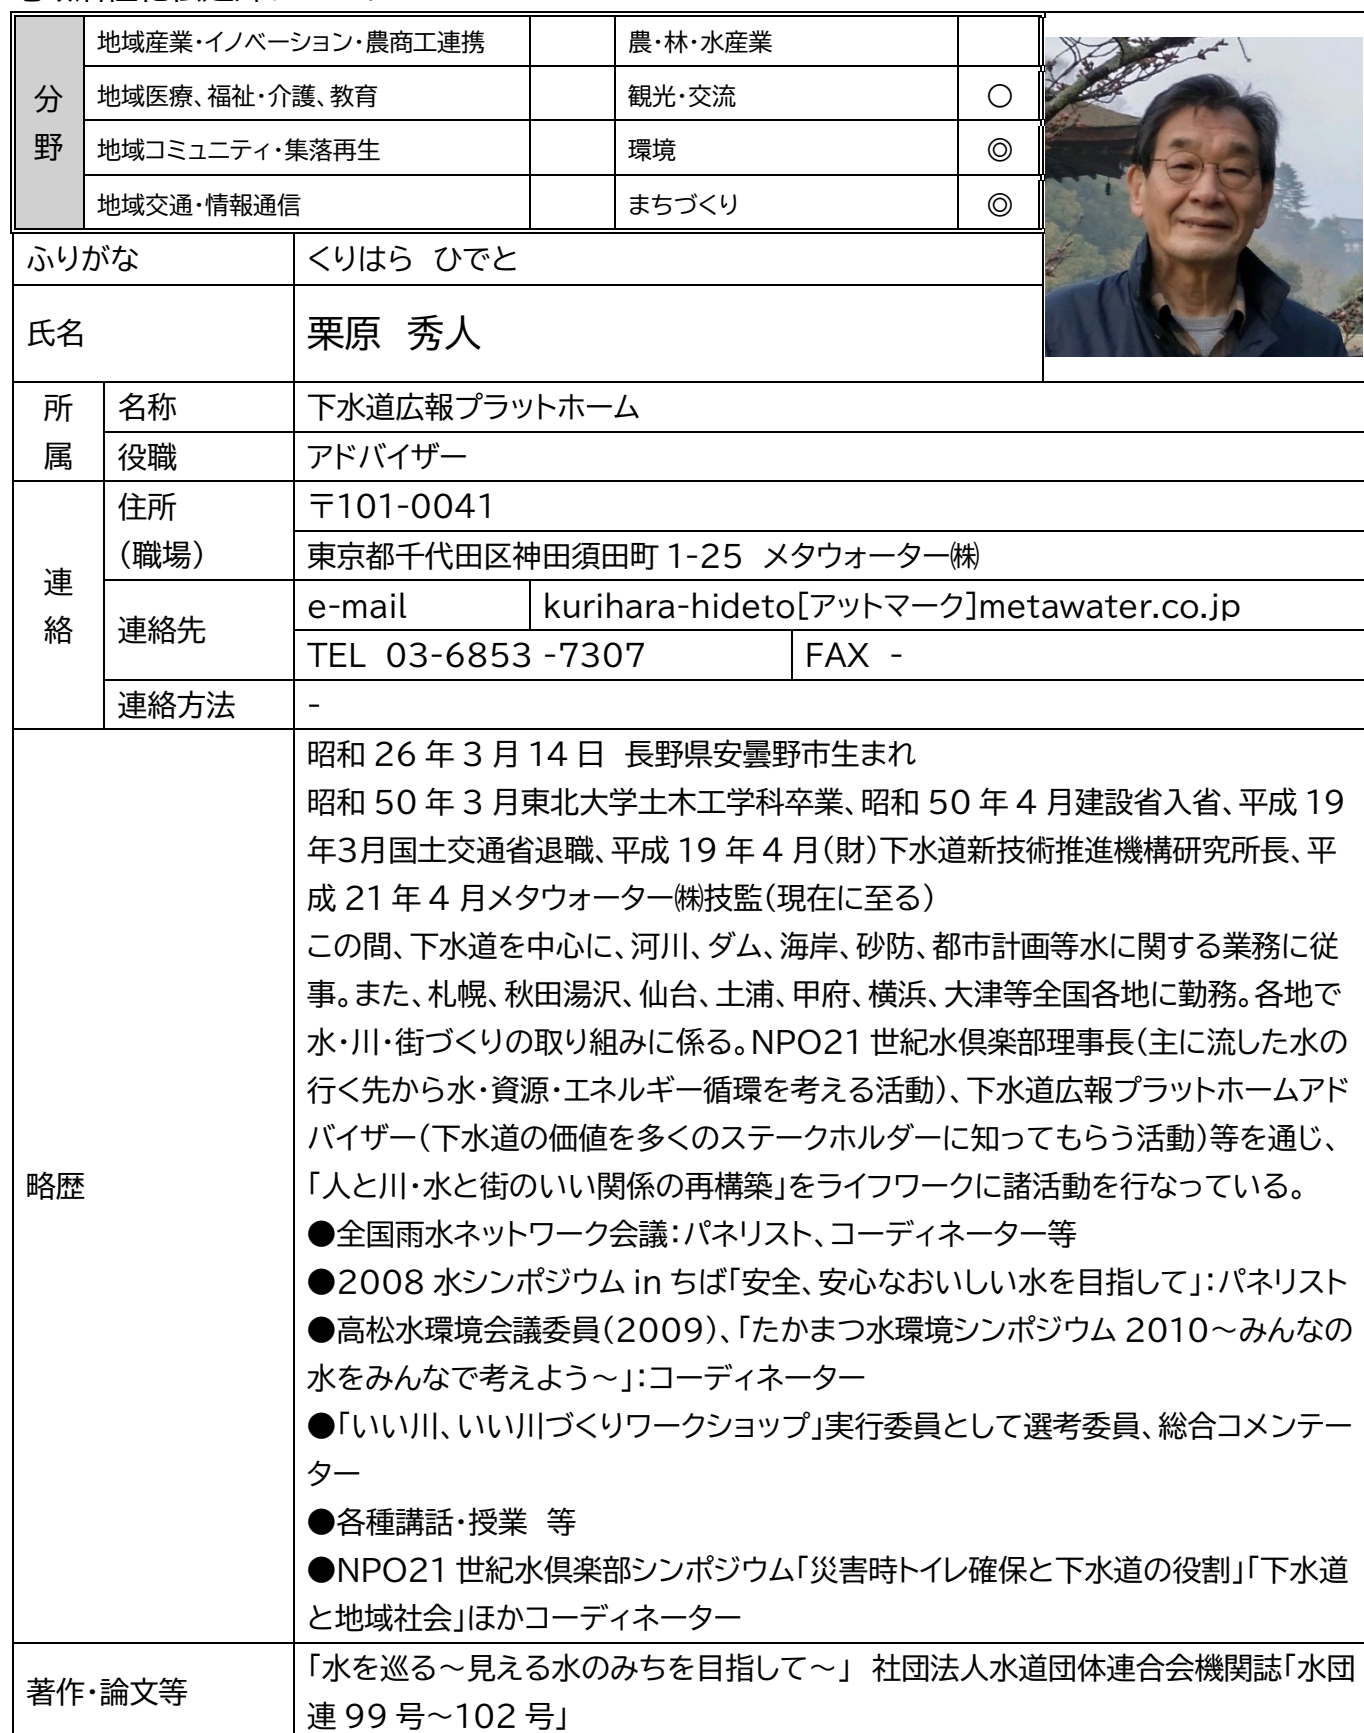 分野
地域産業・イノベーション・農商工連携 農・林・水産業
地域医療、福祉・介護、教育 観光・交流 ○
地域コミュニティ・集落再生 環境 ◎
地域交通・情報通信 まちづくり ◎
ふりがな くりはら ひでと
氏名 栗原 秀人
所属 名称 下水道広報プラットホーム
役職 アドバイザー
連絡 住所 〒101-0041
（職場） 東京都千代田区神田須田町 1-25 メタウォーター㈱
連絡先 e-mail kurihara-hideto[アットマーク]metawater.co.jp
TEL 03-6853 -7307 FAX -
連絡方法 -
略歴
昭和 26 年 3 月 14 日 長野県安曇野市生まれ
昭和 50 年 3 月東北大学土木工学科卒業、昭和 50 年 4 月建設省入省、平成 19
年3月国土交通省退職、平成 19 年 4 月（財）下水道新技術推進機構研究所長、平
成 21 年 4 月メタウォーター㈱技監（現在に至る）
この間、下水道を中心に、河川、ダム、海岸、砂防、都市計画等水に関する業務に従
事。また、札幌、秋田湯沢、仙台、土浦、甲府、横浜、大津等全国各地に勤務。各地で
水・川・街づくりの取り組みに係る。NPO21 世紀水倶楽部理事長（主に流した水の
行く先から水・資源・エネルギー循環を考える活動）、下水道広報プラットホームアド
バイザー（下水道の価値を多くのステークホルダーに知ってもらう活動）等を通じ、
「人と川・水と街のいい関係の再構築」をライフワークに諸活動を行なっている。
●全国雨水ネットワーク会議：パネリスト、コーディネーター等
●2008 水シンポジウム in ちば「安全、安心なおいしい水を目指して」：パネリスト
●高松水環境会議委員（2009）、「たかまつ水環境シンポジウム 2010～みんなの
水をみんなで考えよう～」：コーディネーター
●「いい川、いい川づくりワークショップ」実行委員として選考委員、総合コメンテー
ター
●各種講話・授業 等
●NPO21 世紀水倶楽部シンポジウム「災害時トイレ確保と下水道の役割」「下水道
と地域社会」ほかコーディネーター
著作・論文等
「水を巡る～見える水のみちを目指して～」 社団法人水道団体連合会機関誌「水団
連 99 号～102 号」